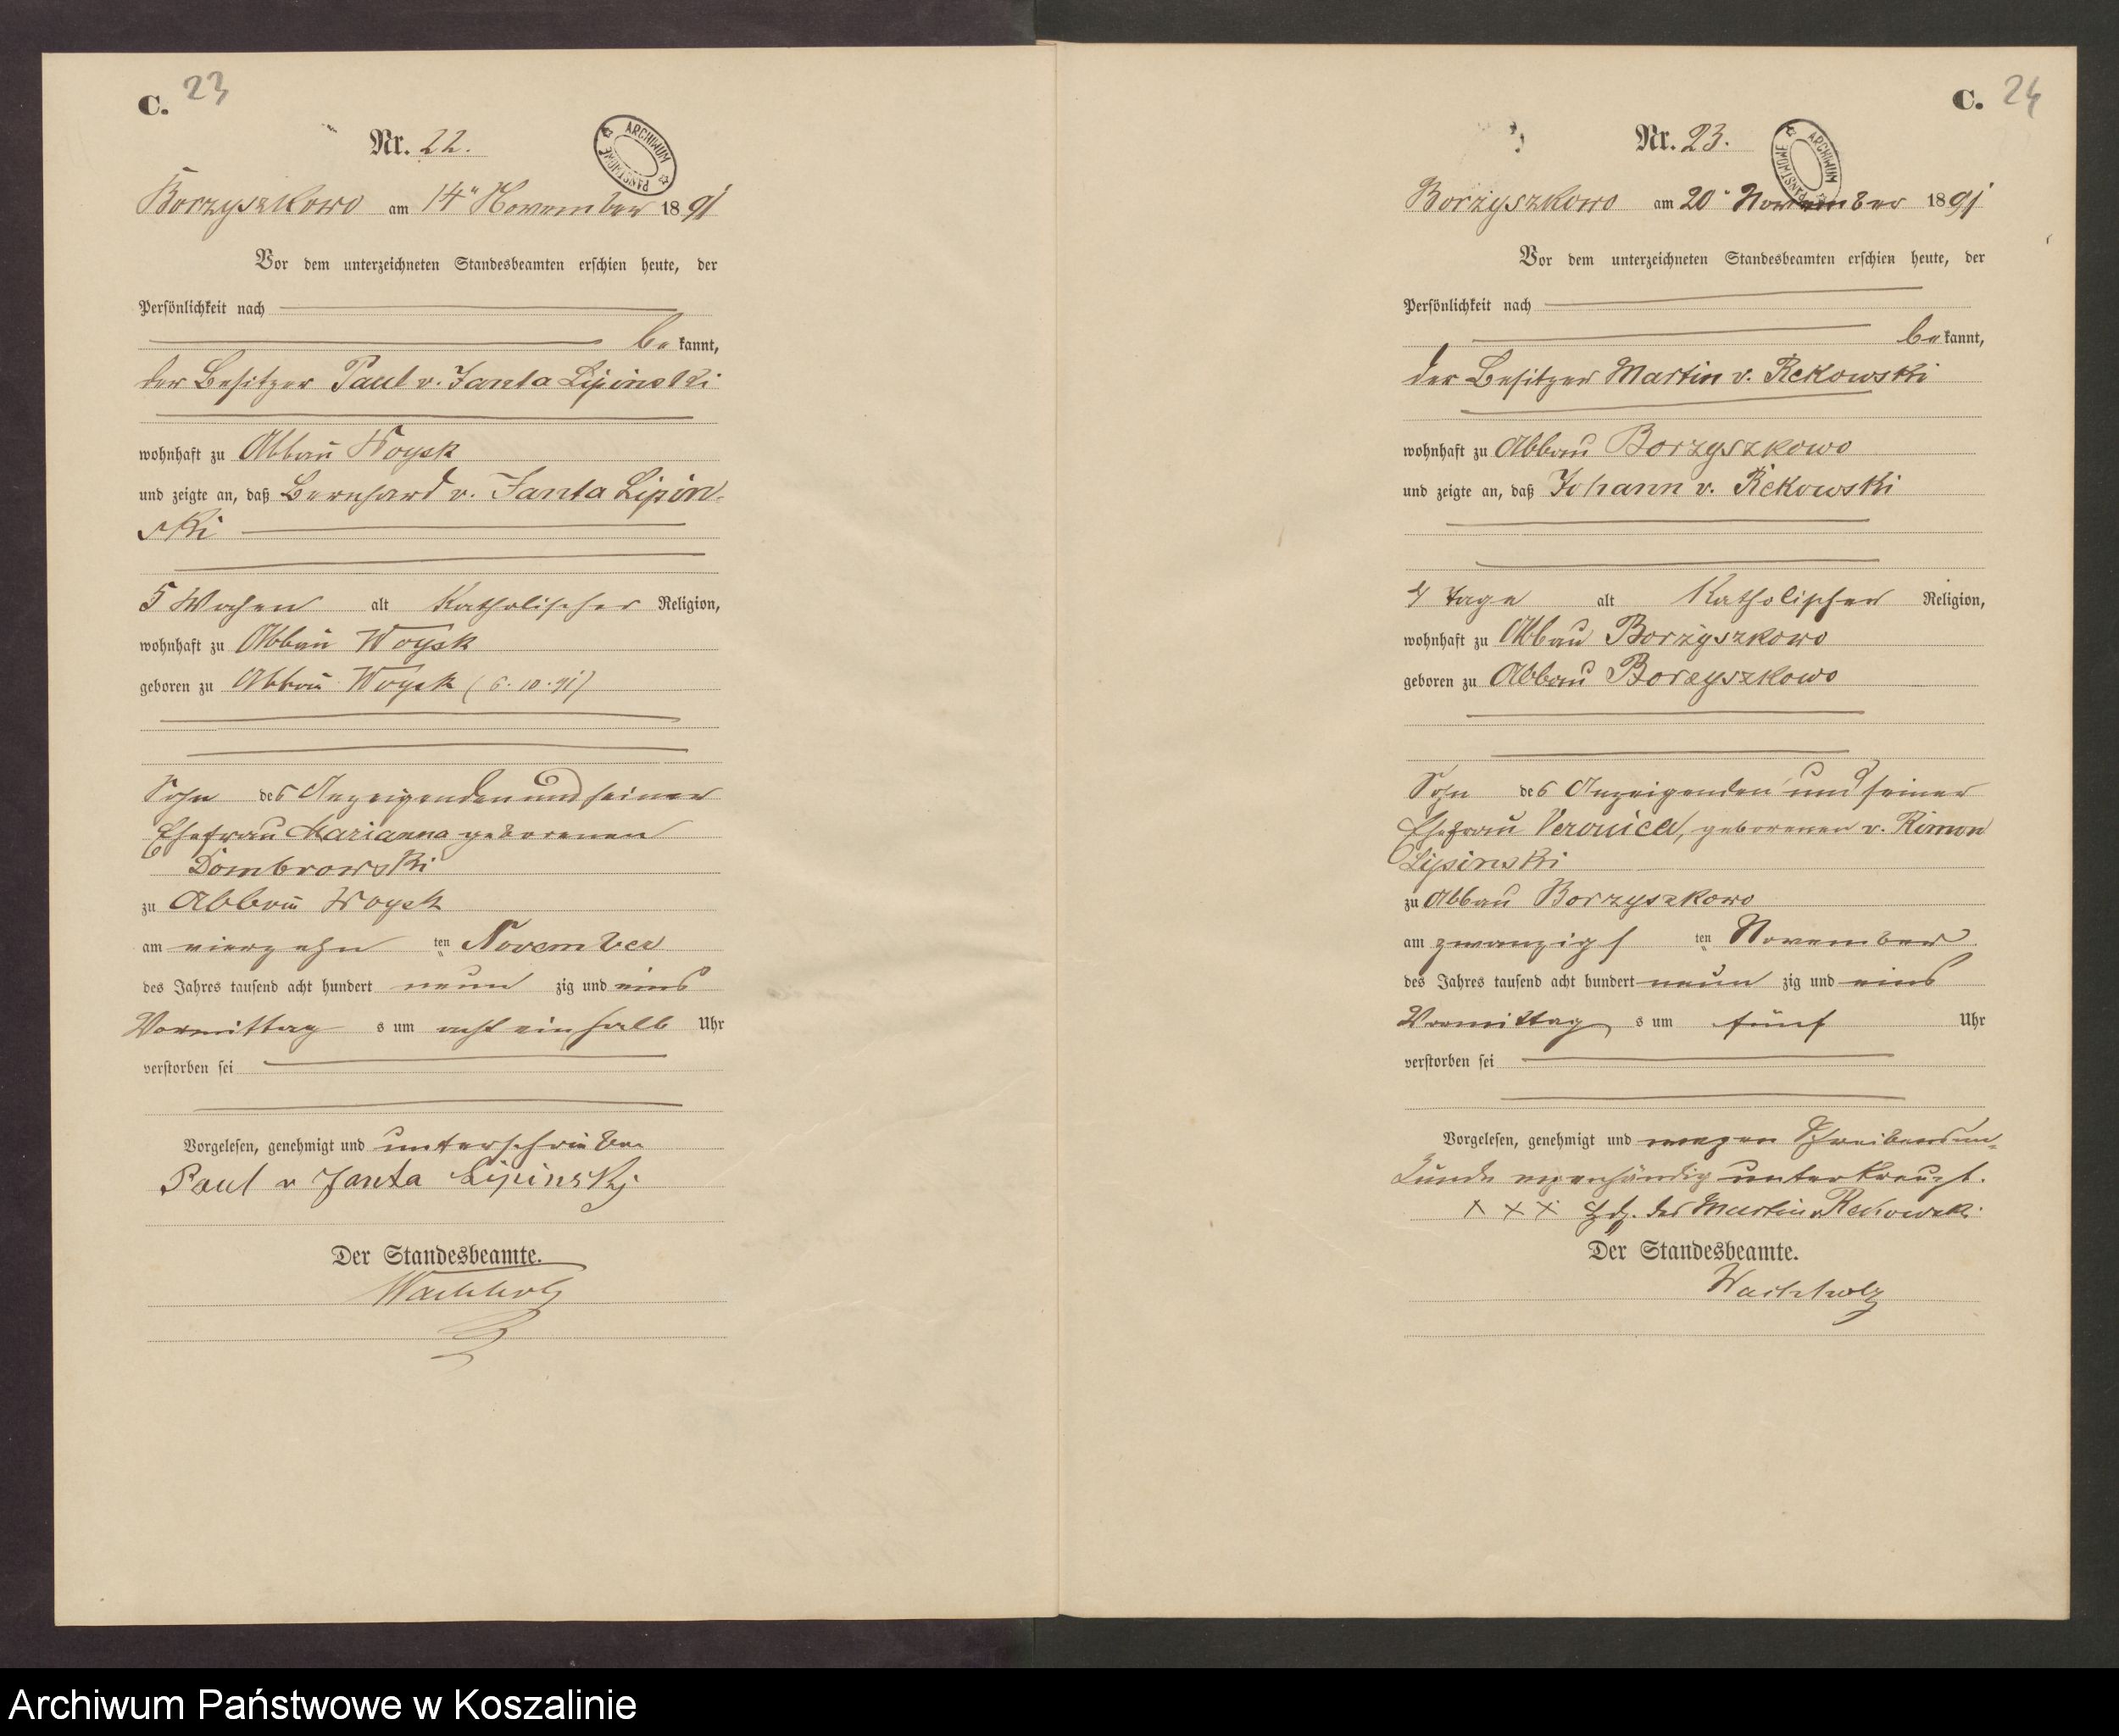 C. 23
Nr. 22.
ARCHIWUM PAŃSTWOWE
Borzyszkowo am 14ten November 1891
Vor dem unterzeichneten Standesbeamten erschien heute, der
Persönlichkeit nach
bekannt,
der Besitzer Paul v. Janta Lipinski
wohnhaft zu Abbau Woysk
und zeigte an, daß Bernhard v. Janta Lipin-
ski
5 Wochen alt Katholischer Religion,
wohnhaft zu Abbau Woysk
geboren zu Abbau Woysk (6. 10. 91)
Sohn des Anzeigenden und seiner
Ehefrau Marianna geborenen
Dombrowski
zu Abbau Woysk
am vierzehnten November
des Jahres tausend acht hundert neunzig und eins
Vormittags um acht einhalb Uhr
verstorben sei
Vorgelesen, genehmigt und unterschrieben
Paul v Janta Lipinski
Der Standesbeamte.
Wachholz
C. 24
Nr. 23.
ARCHIWUM PAŃSTWOWE
Borzyszkowo am 20ten November 1891
Vor dem unterzeichneten Standesbeamten erschien heute, der
Persönlichkeit nach
bekannt,
der Besitzer Martin v. Rekowski
wohnhaft zu Abbau Borzyszkowo
und zeigte an, daß Johann v. Rekowski
4 Tage alt Katholischer Religion,
wohnhaft zu Abbau Borzyszkowo
geboren zu Abbau Borzyszkowo
Sohn des Anzeigenden und seiner
Ehefrau Veronica, geborenen v. Rimon
Lipinski
zu Abbau Borzyszkowo
am zwanzigsten November
des Jahres tausend acht hundert neunzig und eins
Vormittags um fünf Uhr
verstorben sei
Vorgelesen, genehmigt und wegen Schreibensun-
kunde eigenhändig unterkreuzt.
X X X Hdz. des Martin v Rekowski
Der Standesbeamte.
Wachholz
Archiwum Państwowe w Koszalinie